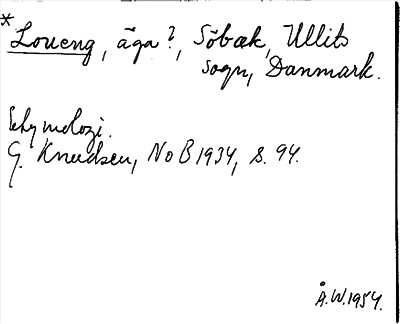 * Loueng, äga?, Söbæk, Ullits
Sogn, Danmark.
Etymologi.
G. Knudsen, NoB 1934, s. 94.
Å.W. 1954.